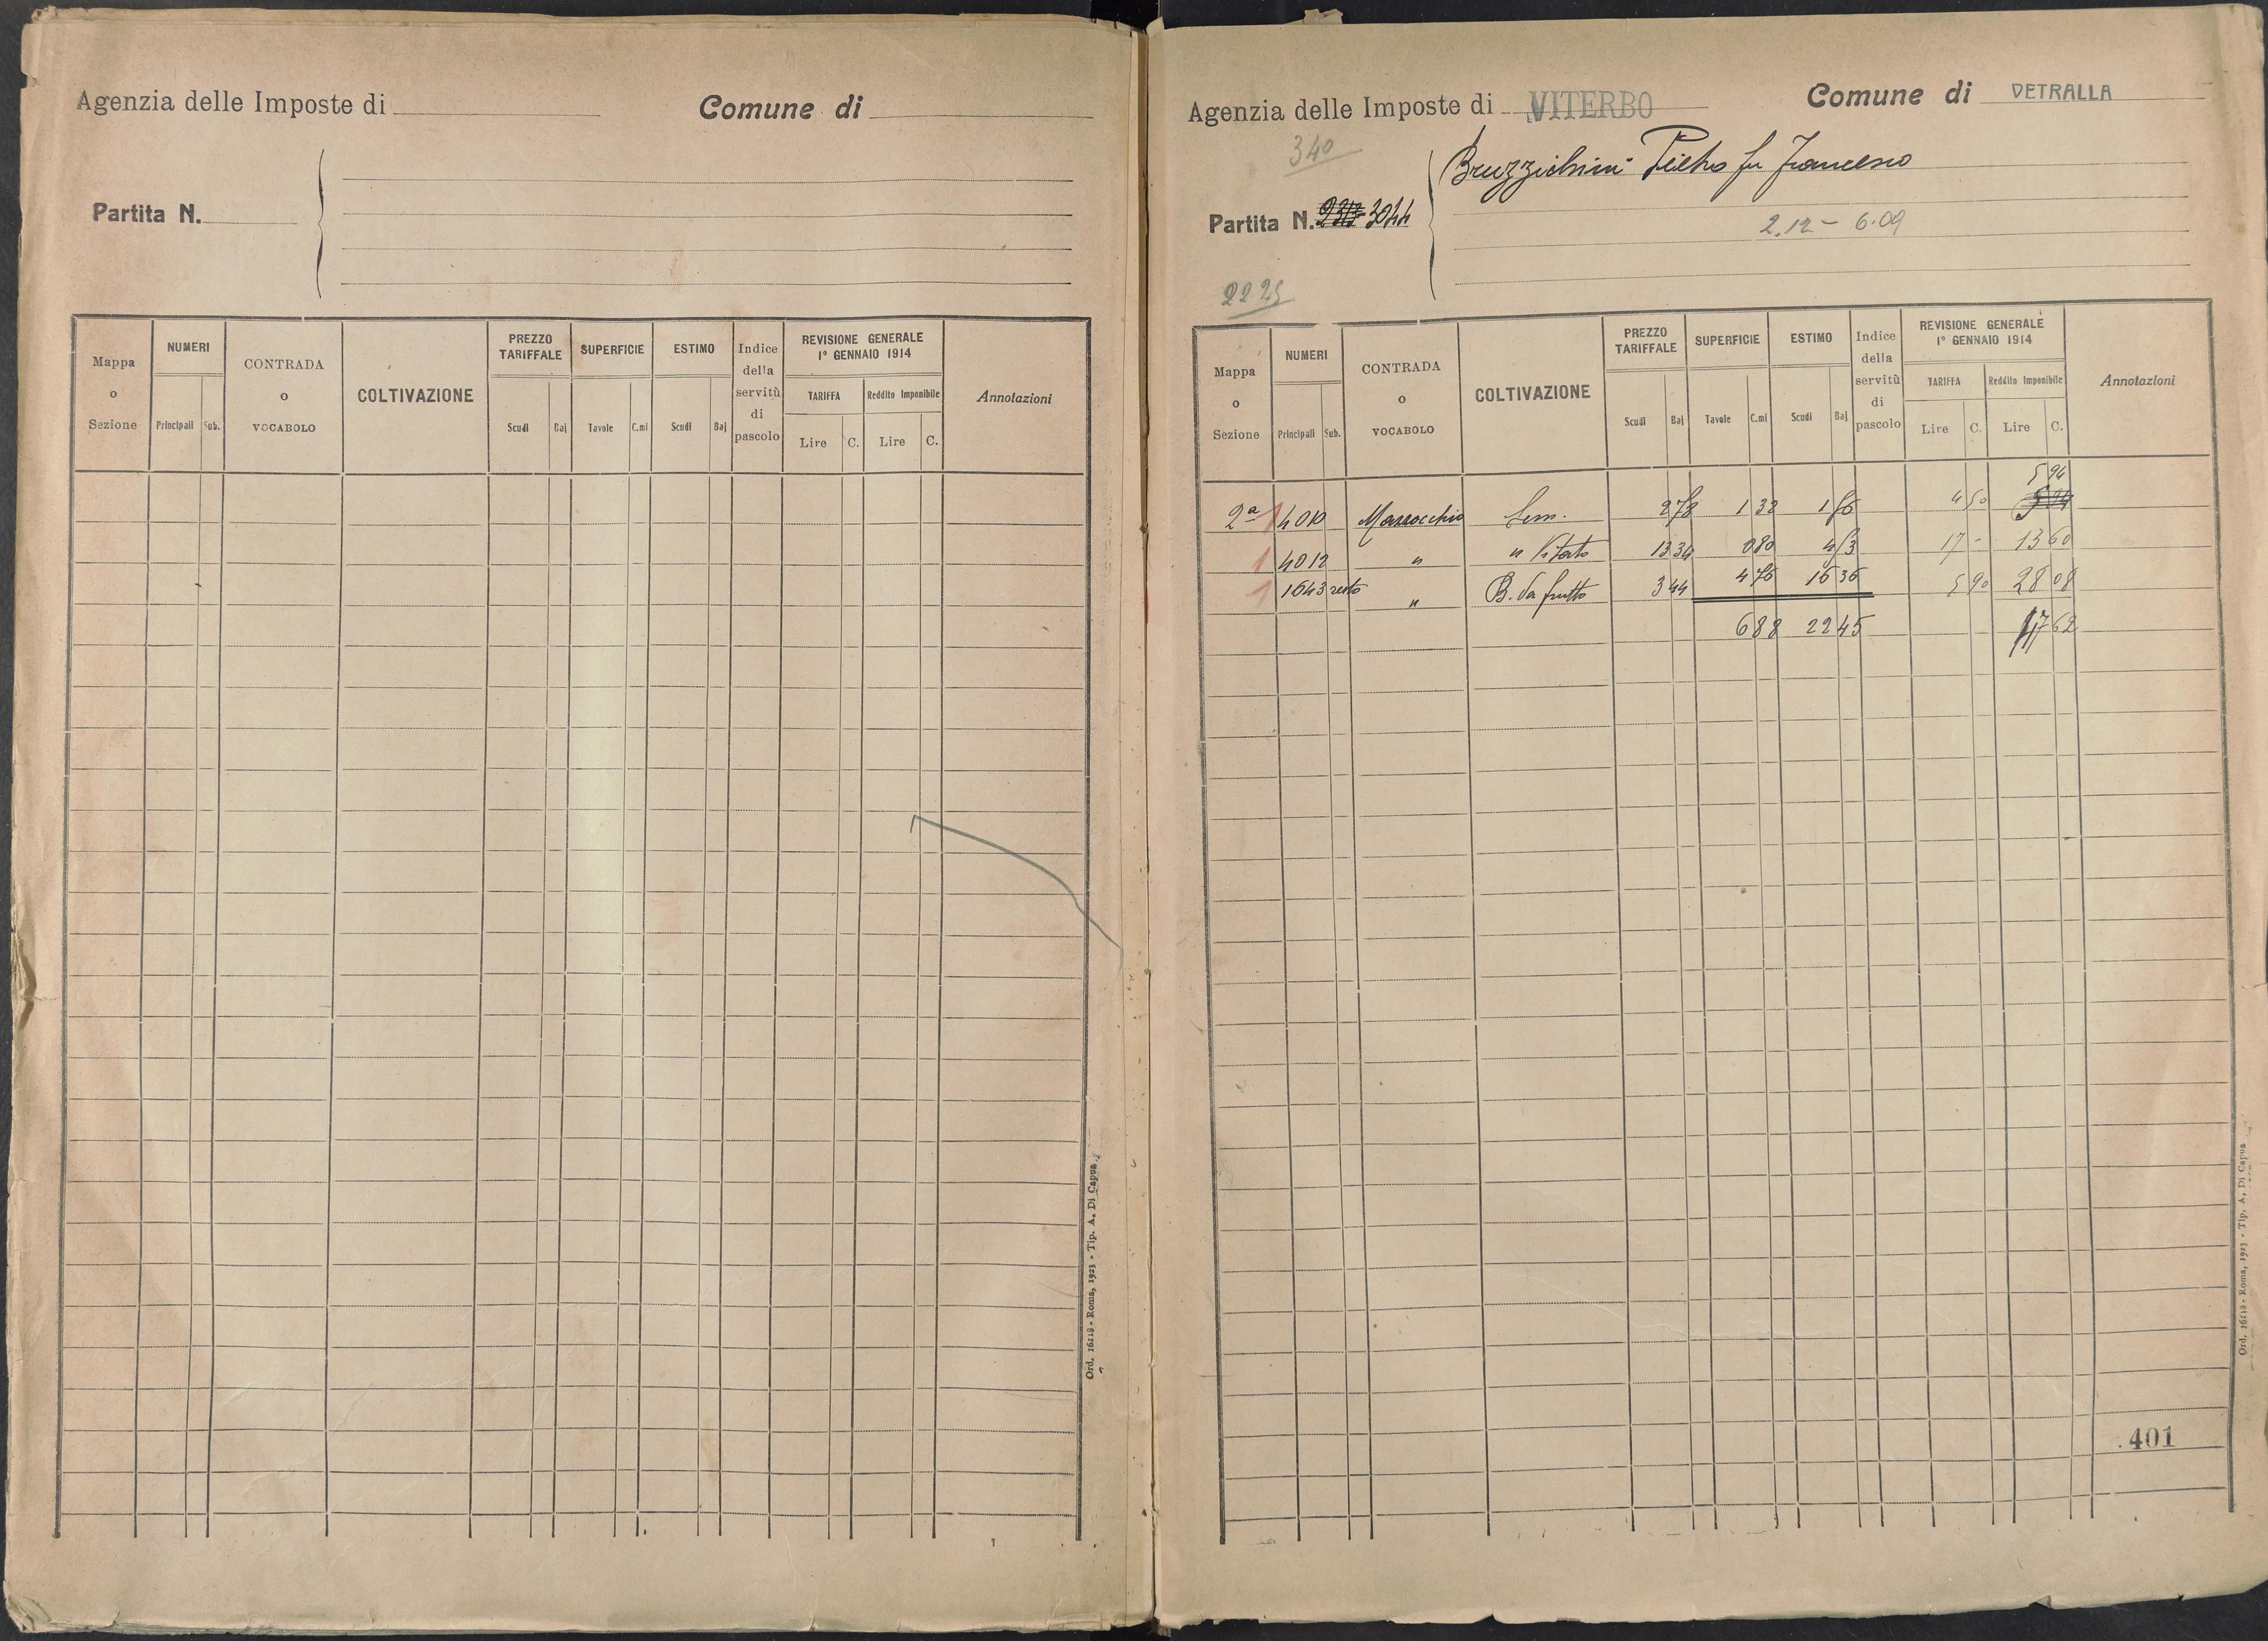 Agenzia delle Imposte di
Comune di
Partita N.
Mappa o Sezione
NUMERI
Principali
Sub.
CONTRADA o VOCABOLO
COLTIVAZIONE
PREZZO TARIFFALE
Scudi
Baj
SUPERFICIE
Tavole
C.mi
ESTIMO
Scudi
Baj
Indice della servitù di pascolo
REVISIONE GENERALE
1° GENNAIO 1914
TARIFFA
Lire
C.
Reddito Imponibile
Lire
C.
Annotazioni
Ord. 16118 - Roma, 1923 - Tip. A. Di Capua
Agenzia delle Imposte di VITERBO
Comune di VETRALLA
340
Bruzzichini Pietro fu Francesco
Partita N. 3044
2.12 - 6.09
2225
Mappa o Sezione
NUMERI
Principali
Sub.
CONTRADA o VOCABOLO
COLTIVAZIONE
PREZZO TARIFFALE
Scudi
Baj
SUPERFICIE
Tavole
C.mi
ESTIMO
Scudi
Baj
Indice della servitù di pascolo
REVISIONE GENERALE
1° GENNAIO 1914
TARIFFA
Lire
C.
Reddito Imponibile
Lire
C.
Annotazioni
5 94
2a 1 4010 Sem. 2 78 1 32 4 50
1 4012 " " Vitato 13 34 0 80 17 - 13 60
1 1643 resto " B. da frutto 3 44 4 76 16 36 5 90 28 08
6 88 22 45 47 62
401
Ord. 16118 - Roma, 1923 - Tip. A. Di Capua